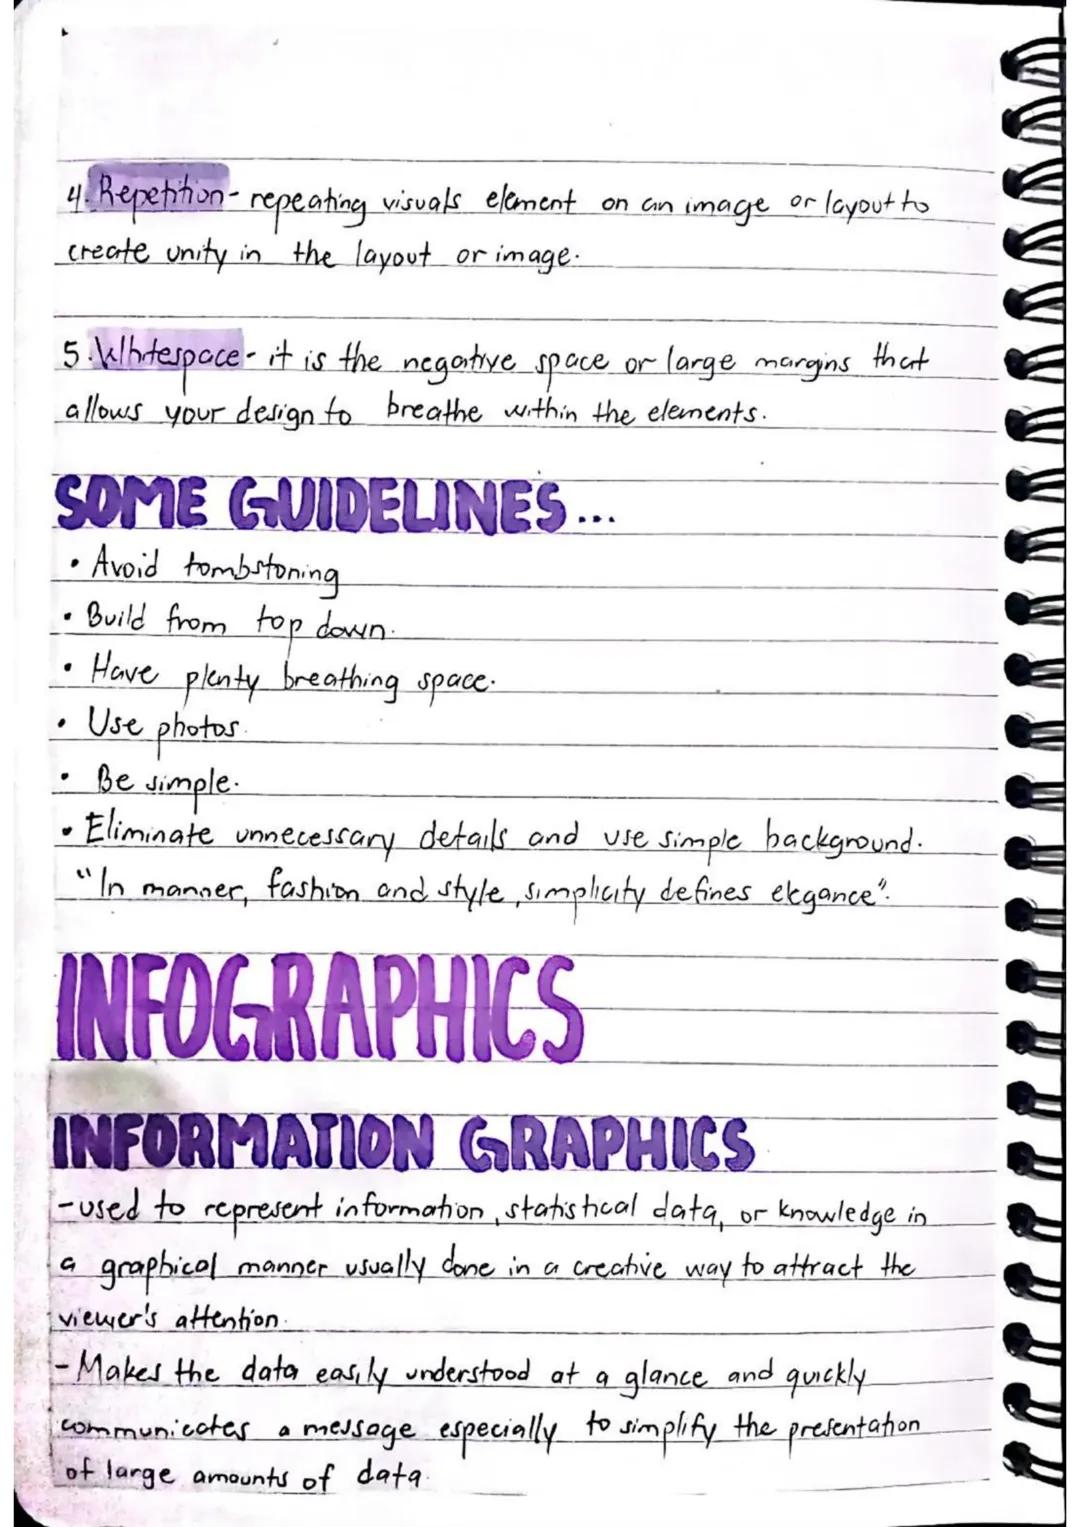 4. Repetition- repeating visuals element on an image or layout to
create unity in the layout or image.
5. Whitespace- it is the negative space or large margins that
allows your design to breathe within the elements.
SOME GUIDELINES...
• Avoid tombstoning
• Build from top down.
• Have plenty breathing space.
• Use photos.
• Be simple.
• Eliminate unnecessary details and use simple background.
"In manner, fashion and style, simplicity defines elegance".
INFOGRAPHICS
INFORMATION GRAPHICS
-used to represent information, statistical data, or knowledge in
a graphical manner usually done in a creative way to attract the
viewer's attention.
- Makes the data easily understood at a glance and quickly
communicates a message especially to simplify the presentation
of large amounts of data.